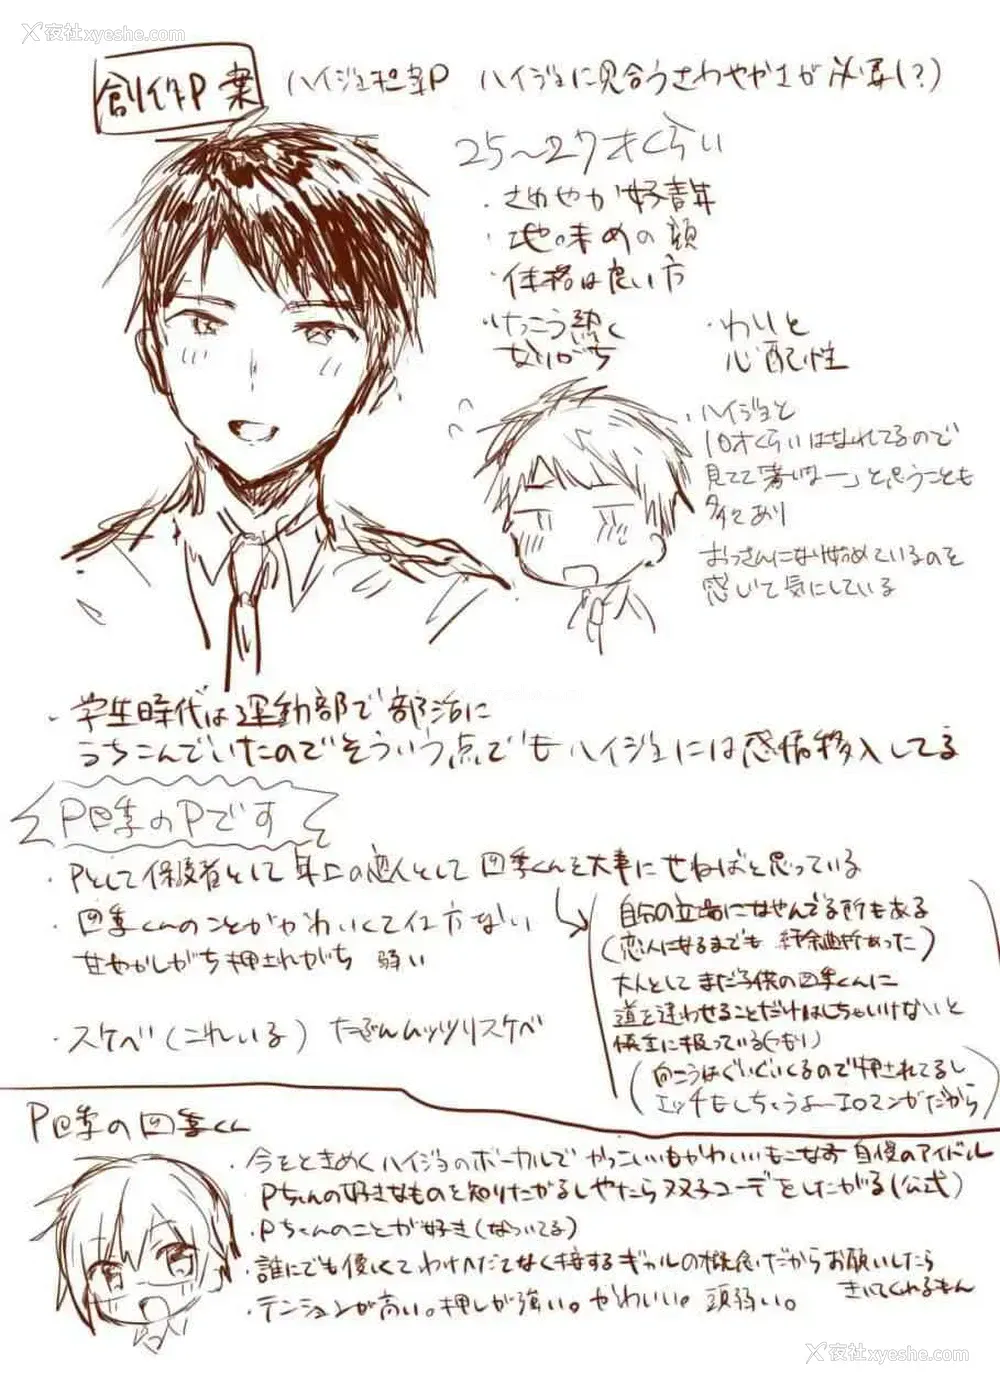 夜社xyeshe.com
創作P案
ハイジョ担当P ハイジョに見合うさわやかさが必要(?)
25〜27才くらい
・さわやか好青年
・地味めの顔
・体格は良い方
・けっこう熱く
なりがち
・わりと
心配性
・ハイジョと
10才くらいはなれてるので
見てて「若いなー」と思うことも
多々あり
おっさんになり始めているのを
感じて気にしている
・学生時代は運動部で部活に
うちこんでいたのでそういう点でもハイジョには感情移入してる
P四季のPです
・Pとして保護者として年上の恋人として四季くんを大事にせねばと思っている
・四季くんのことがかわいくて仕方ない
甘やかしがち押されがち 弱い
・スケベ(これいる) たぶんムッツリスケベ
自分の立場になやんでる所もある
(恋人になるまでも紆余曲折あった)
大人としてまだ子供の四季くんに
道を違わせることだけはしちゃいけないと
慎重に扱っている(つもり)
(向こうはぐいぐいくるので押されてるし
エッチもしちゃうよーエロマンガだから)
P四季の四季くん
・今をときめくハイジョのボーカルでかっこいいもかわいいもこなす自慢のアイドル
Pちゃんの好きなものを知りたがるしやたら双子コーデをしたがる(公式)
・Pちゃんのことが好き(なついてる)
・誰にでも優しくてわけへだてなく接するギャルの概念だからお願いしたら
きいてくれるもん
・テンションが高い。押しが強い。かわいい。頭弱い。
夜社xyeshe.com